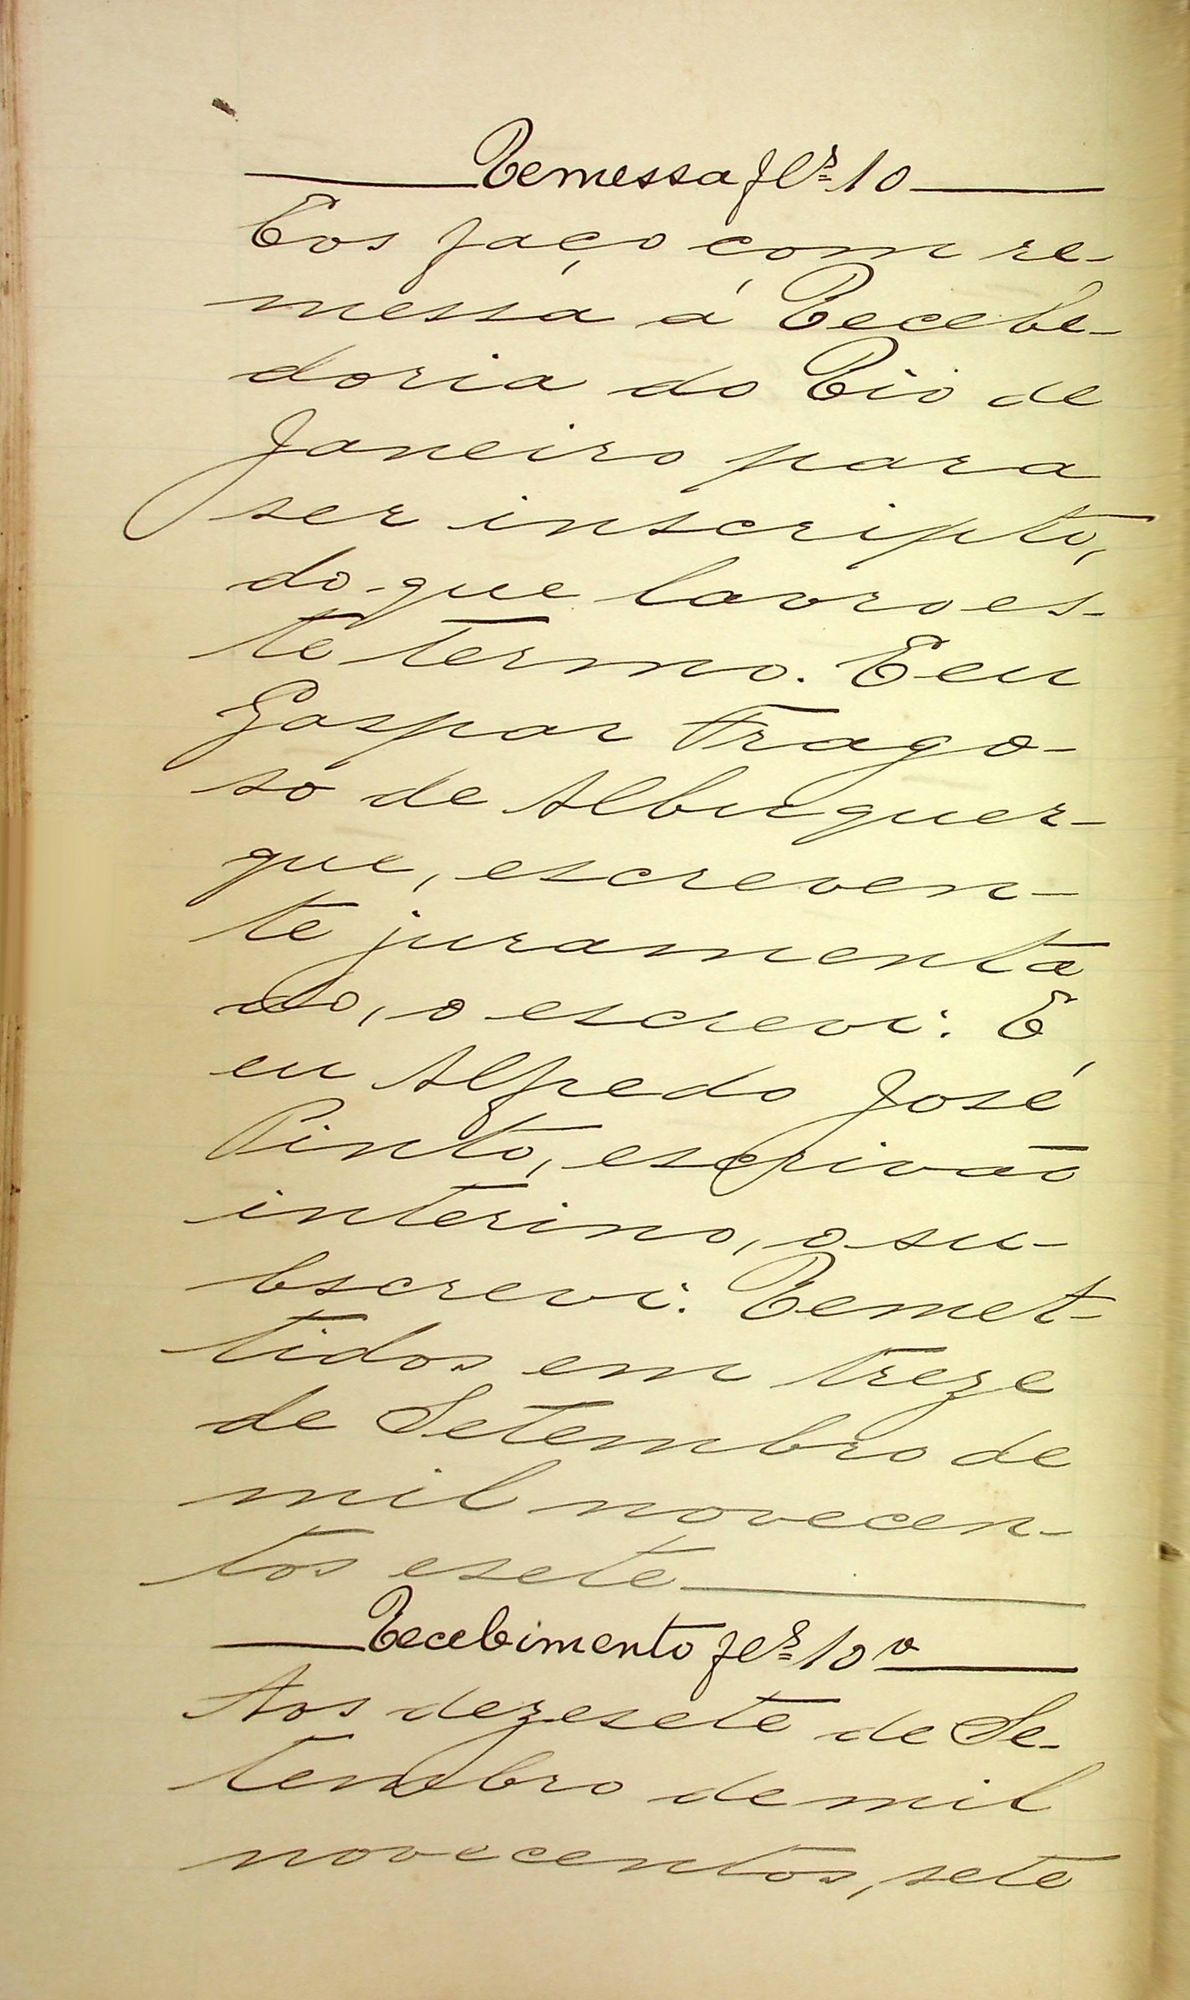 Remessa fls 10
Eos faço com re-
messa á Recebe-
doria do Rio de
Janeiro para
ser inscripto,
do que lavro es-
te termo. E eu
Gaspar Frago-
so de Albuquer-
que, escreven-
te juramenta
do, o escrevi. E
eu Alfredo José
Pinto, escrivão
interino, o su-
bscrevi. Remet-
tidos em treze
de Setembro de
mil novecen-
tos e sete
Recebimento fls 10 v
Aos dezesete de Se-
tembro de mil
novecentos, sete